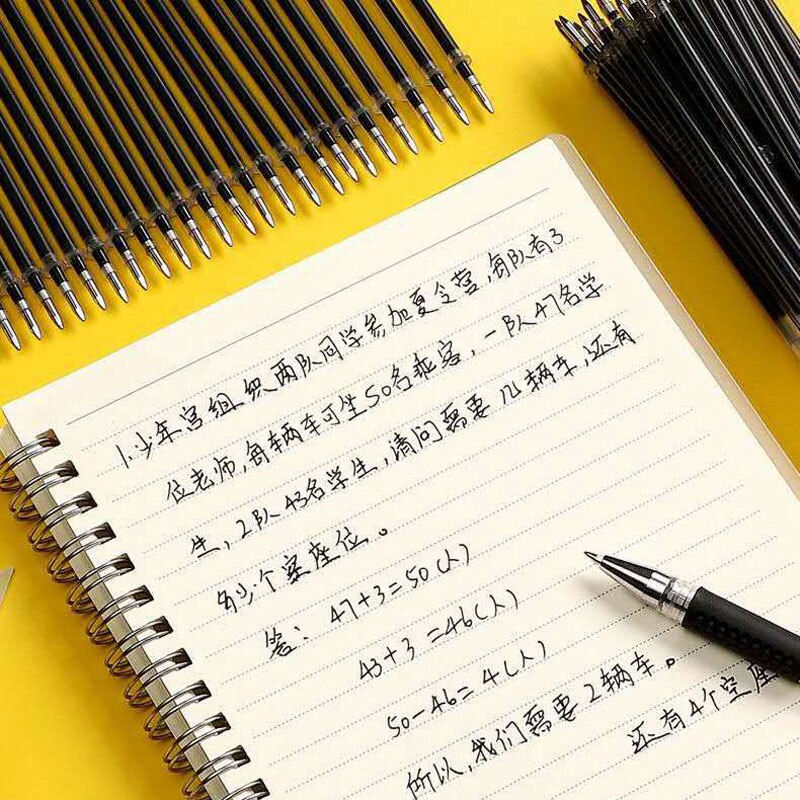 1.少年宫组织两队同学参加夏令营,每队有3
位老师,每辆车可坐50名乘客,一队47名学
生,2队43名学生,请问需要几辆车,还有
多少个空座位。
答:47+3=50(人)
43+3=46(人)
50-46=4(人)
所以,我们需要2辆车。
还有4个空座